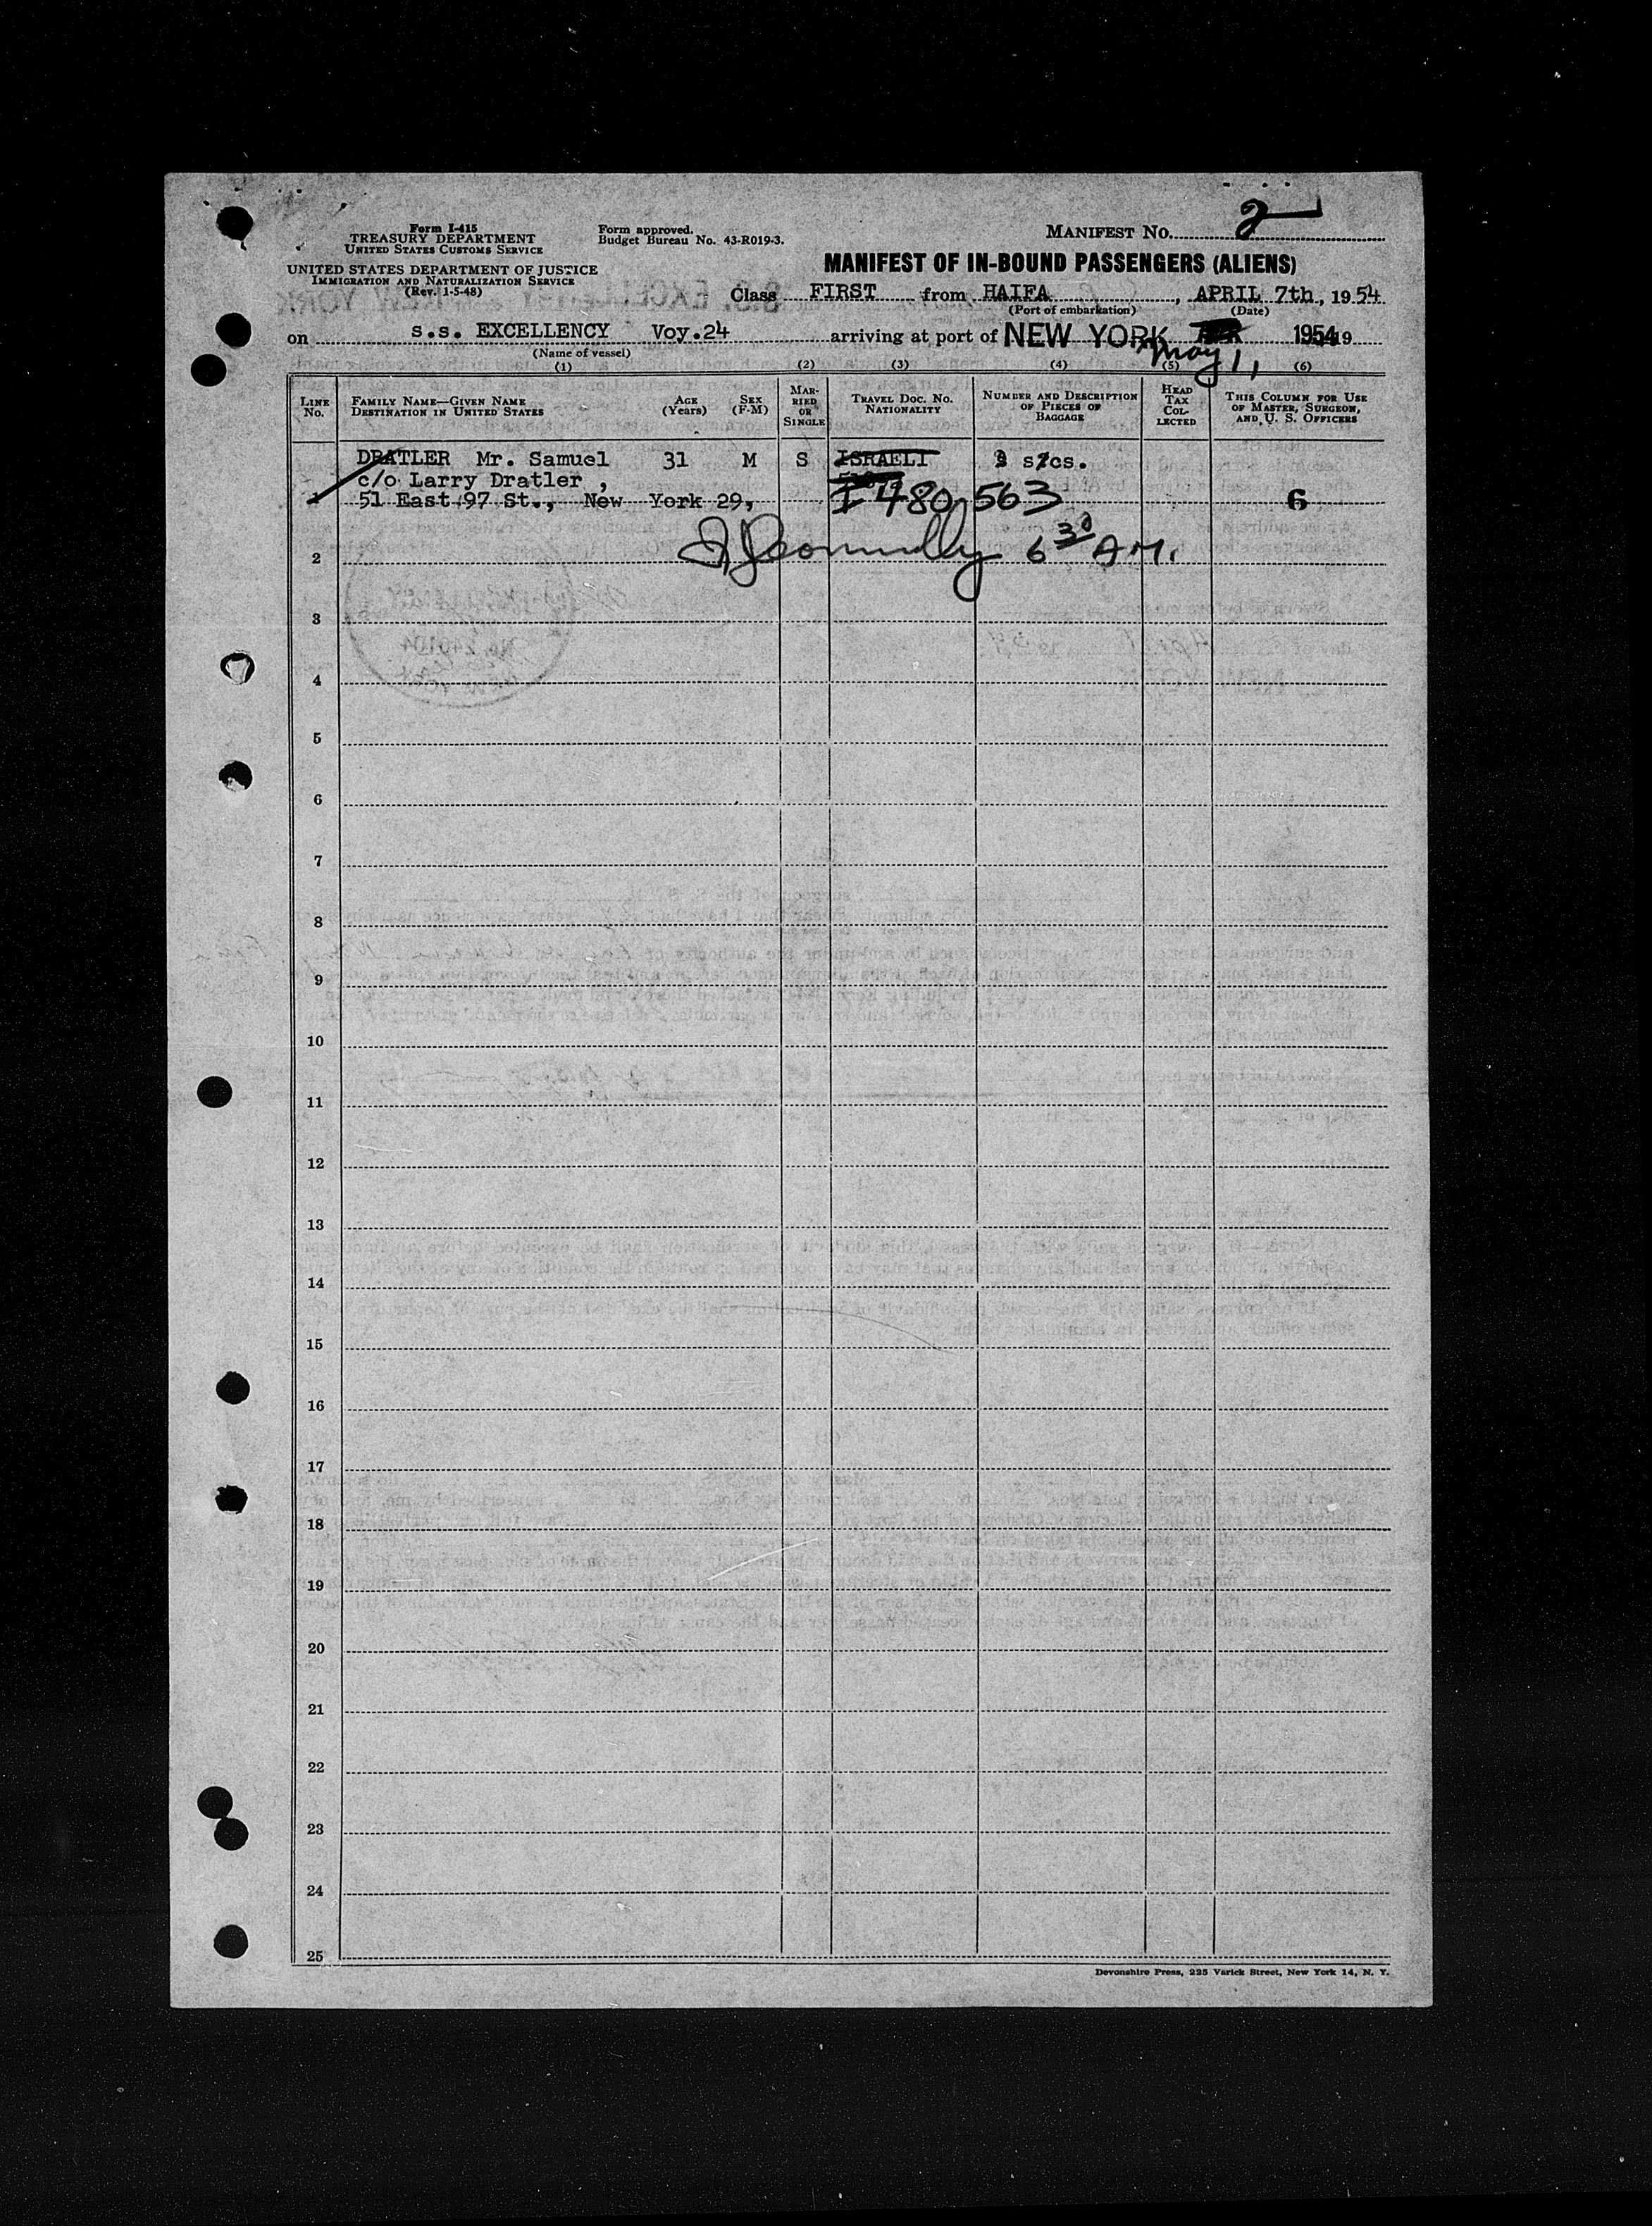 Form I-415
TREASURY DEPARTMENT
UNITED STATES CUSTOMS SERVICE
UNITED STATES DEPARTMENT OF JUSTICE
IMMIGRATION AND NATURALIZATION SERVICE
(Rev. 1-5-48)
Form approved.
Budget Bureau No. 43-R019-3.
MANIFEST NO. 2
MANIFEST OF IN-BOUND PASSENGERS (ALIENS)
Class FIRST from HAIFA, APRIL 7th, 1954
(Port of embarkation) (Date)
on s.s. EXCELLENCY Voy.24 arriving at port of NEW YORK May 1, 1954 19
(Name of vessel)
(1) (2) (3) (4) (5) (6)
LINE NO.
FAMILY NAME—GIVEN NAME
DESTINATION IN UNITED STATES
AGE (Years)
SEX (F-M)
MARRIED OR SINGLE
TRAVEL DOC. NO.
NATIONALITY
NUMBER AND DESCRIPTION OF PIECES OF BAGGAGE
HEAD TAX COLLECTED
THIS COLUMN FOR USE OF MASTER, SURGEON, AND U. S. OFFICERS
DRATLER Mr. Samuel 31 M S ISRAELI s/cs.
c/o Larry Dratler ,
1 51 East 97 St., New York 29, I 480 563 6
2 6 30 A.M.
3
4
5
6
7
8
9
10
11
12
13
14
15
16
17
18
19
20
21
22
23
24
25
Devonshire Press, 225 Varick Street, New York 14, N. Y.